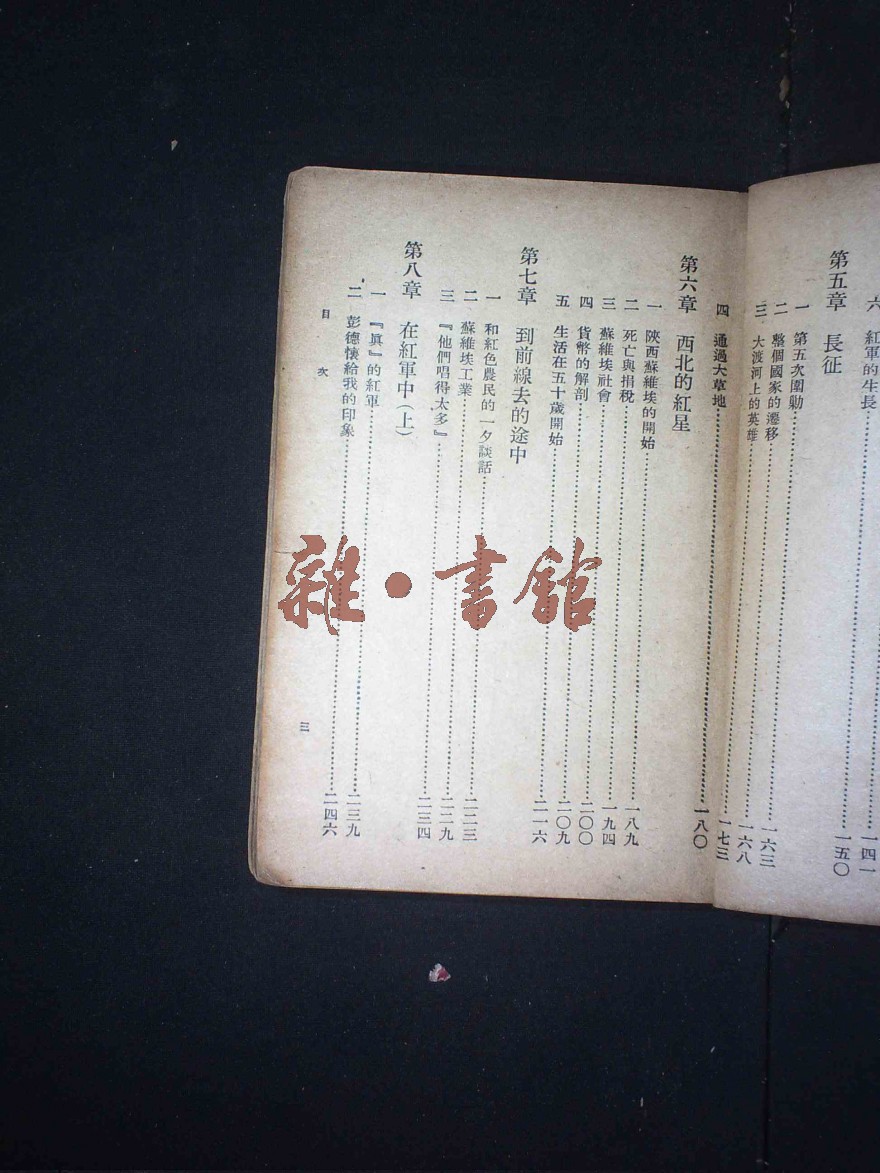 一四一
六 紅軍的生長……一五〇
第五章 長征
一 第五次圍勦……一六三
二 整個國家的遷移……一六八
三 大渡河上的英雄……一七三
四 通過大草地……一八〇
第六章 西北的紅星
一 陝西蘇維埃的開始……一八九
二 死亡與捐稅……一九四
三 蘇維埃社會……二〇〇
四 貨幣的解剖……二〇九
五 生活在五十歲開始……二一六
第七章 到前線去的途中
一 和紅色農民的一夕談話……二二三
二 蘇維埃工業……二二九
三 『他們唱得太多』……二三四
第八章 在紅軍中(上)
一 『眞』的紅軍……二三九
二 彭德懷給我的印象……二四六
目次 三
雜·書館